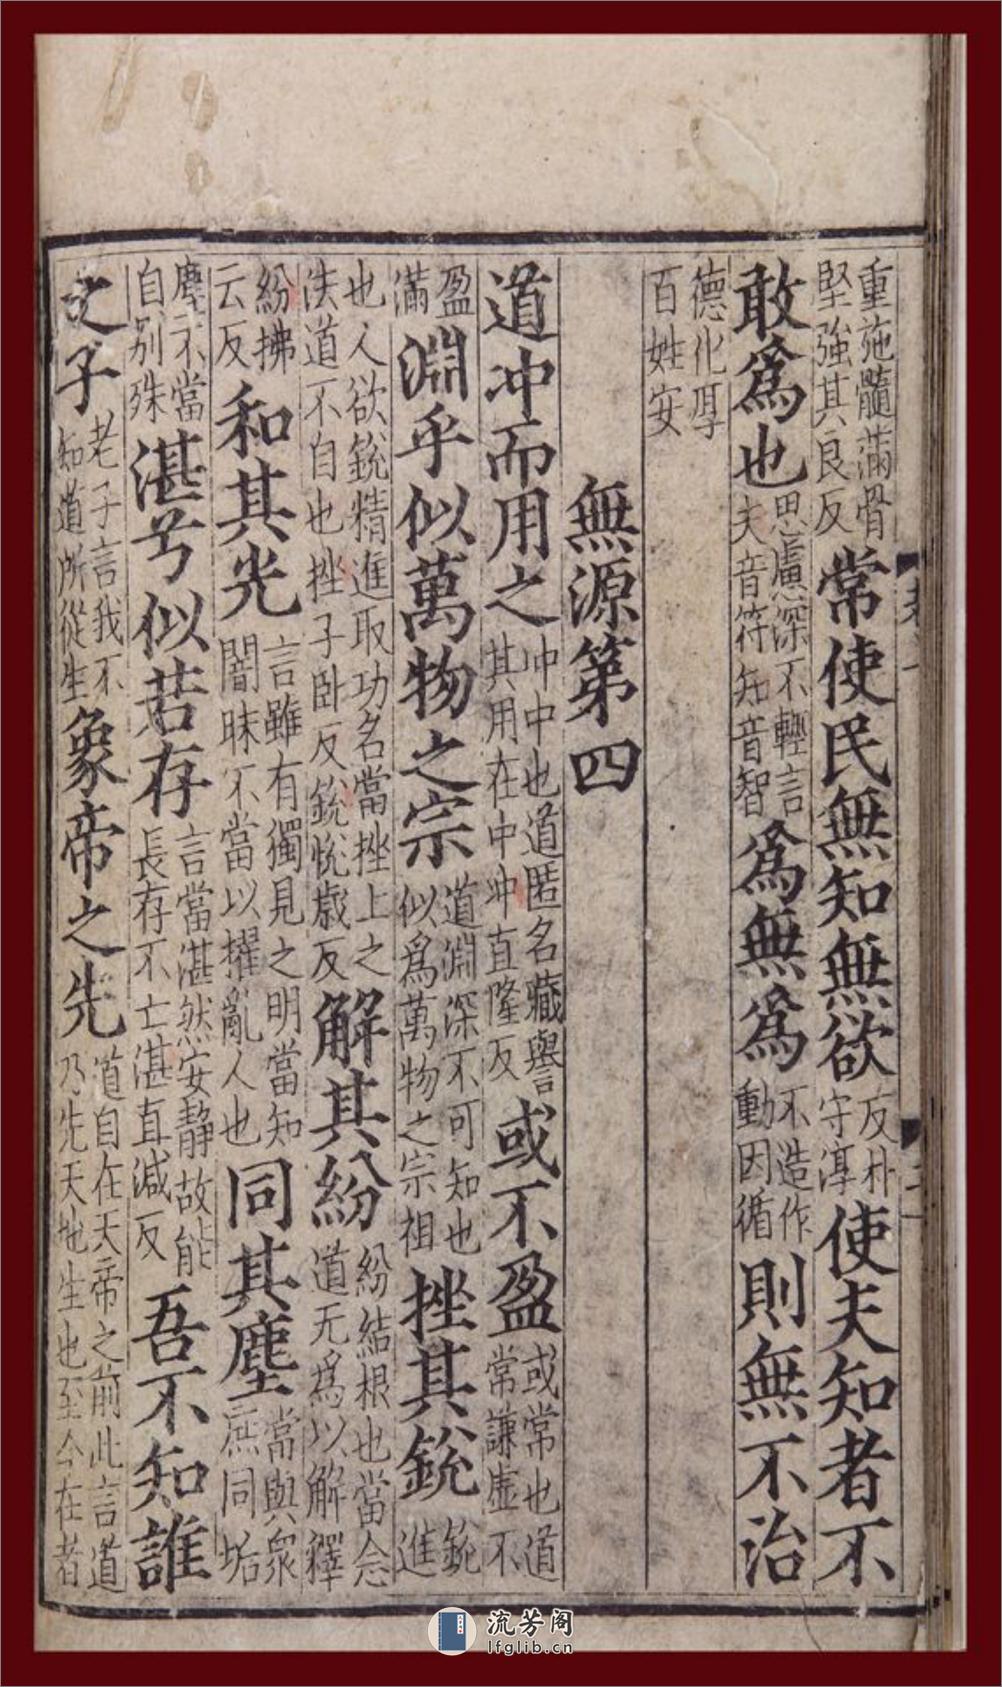 重施髓滿骨堅強其良反常使民無知無欲反朴守淳使夫知者不
敢爲也思慮深不輕言夫音符知音智爲無爲不造作動因循則無不治
德化厚百姓安
無源第四
道冲而用之冲中也道匿名藏譽其用在中冲直隆反或不盈或常也道常謙虛不
盈滿淵乎似萬物之宗道淵深不可知也似爲萬物之宗祖挫其銳銳進
也人欲銳精進取功名當挫上之佚道不自也挫子卧反銳悅歲反解其紛紛結根也當念道无爲以解釋
紛拂云反和其光言雖有獨見之明當知闇昧不當以擢亂人也同其塵當與衆庶同垢
塵不當自别殊湛兮似若存言當湛然安靜故能長存不亡湛直減反吾不知誰
之子老子言我不知道所從生象帝之先道自在天帝之前此言道乃先天地生也至今在者
流芳阁
lfglib.cn